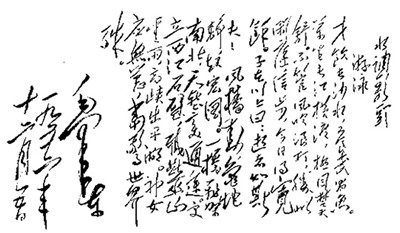 水调歌头
游泳
才飲长沙水,又食武昌魚。
萬里长江横渡,极目楚天
舒。不管风吹浪打,胜似
闲庭信步,今日得宽
馀。子在川上曰:逝者如斯
夫! 风樯动,龟蛇
静,起宏图。一桥飞架
南北,天堑变通途。更
立西江石壁,截断巫山
雲雨,高峡出平湖。神女
应無恙,当惊世界
殊。
毛泽东
一九五六年
十二月五日